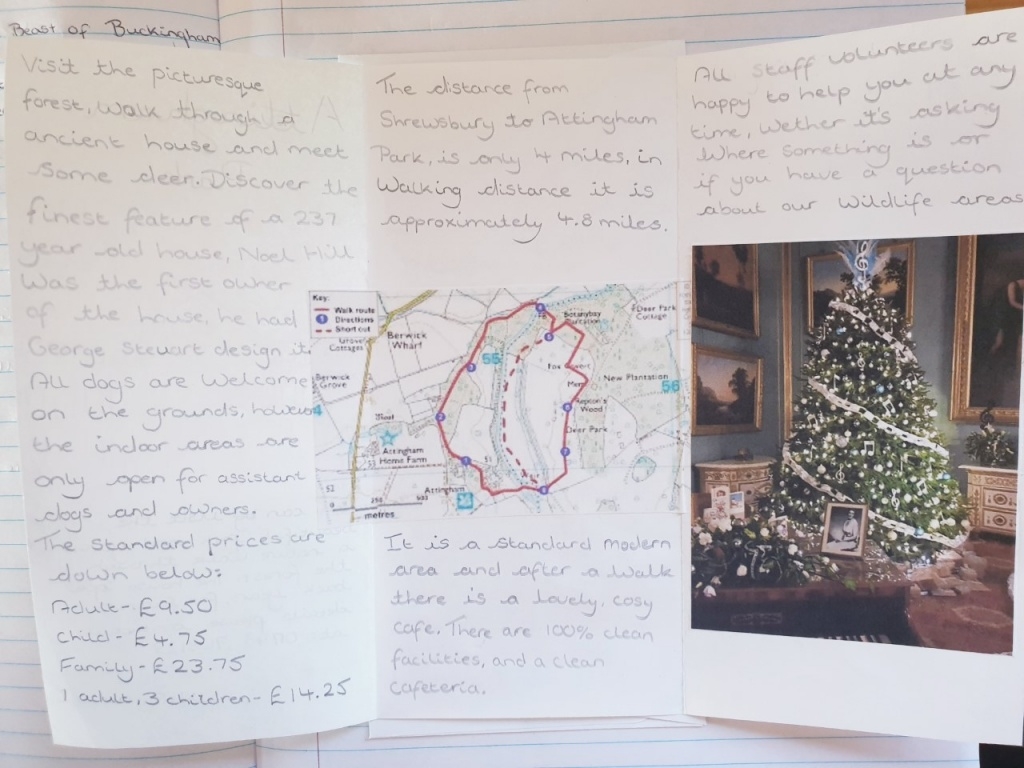 Beast of Buckingham
Visit the picturesque
forest, Walk through a
ancient house and meet
some deer. Discover the
finest feature of a 237
year old house, Noel Hill
Was the first owner
of the house, he had
George Steuart design it.
All dogs are Welcome
on the grounds, however
the indoor areas are
only open for assistant
dogs and owners.
The standard prices are
down below:
Adult - £9.50
Child - £4.75
Family - £23.75
1 adult, 3 children - £14.25
The distance from
Shrewsbury to Attingham
Park, is only 4 miles, in
Walking distance it is
approximately 4.8 miles.
Key:
Walk route
1 Directions
Short cut
Berwick
Wharf
Grove
Cottages
Berwick
Grove
Attingham
Home Farm
Attingham
metres
55
56
51
52
53
0
2
3
7
Deer Park
Cottage
New Plantation
Wood
Deer Park
It is a standard modern
area and after a Walk
there is a lovely, cosy
cafe. There are 100% clean
facilities, and a clean
Cafeteria.
All staff volunteers are
happy to help you at any
time, Wether it's asking
Where something is or
if you have a question
about our Wildlife areas